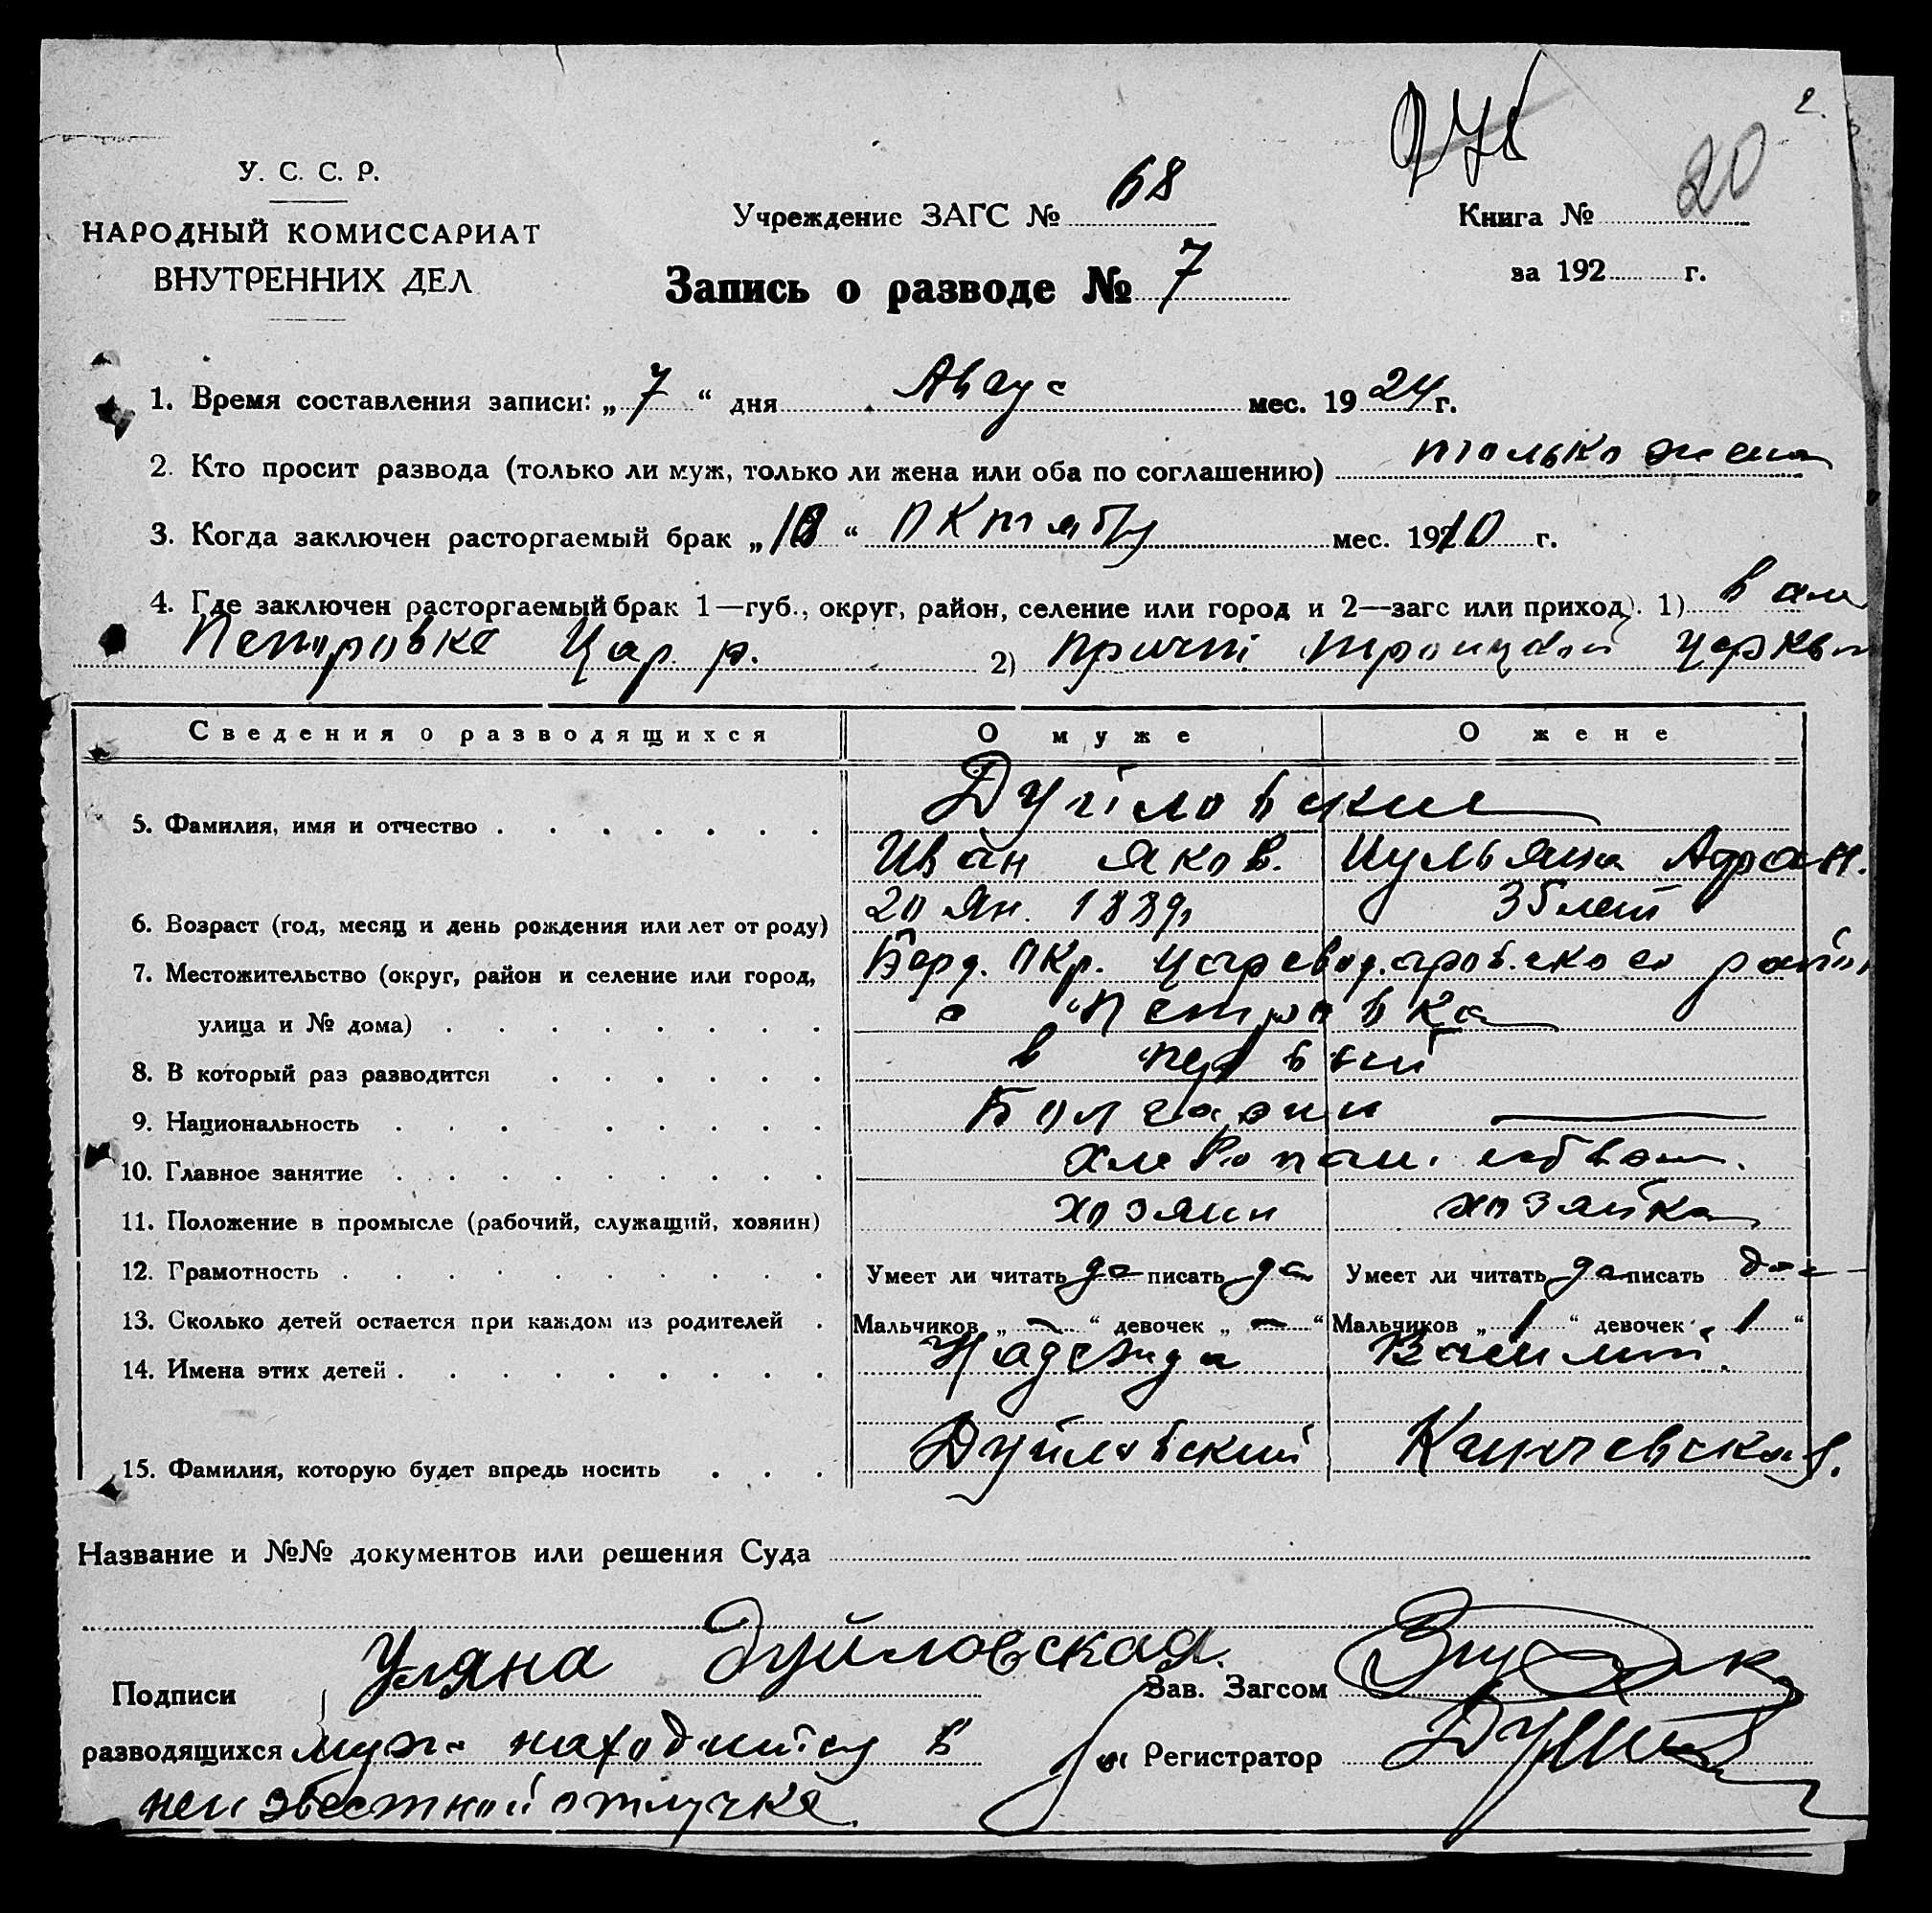 2.
275
20
У. С. С. Р.
НАРОДНЫЙ КОМИССАРИАТ
ВНУТРЕННИХ ДЕЛ
Учреждение ЗАГС № 68
Книга №
за 192 г.
Запись о разводе № 7
1. Время составления записи: „ 7 “ дня Авгус мес. 19 24 г.
2. Кто просит развода (только ли муж, только ли жена или оба по соглашению) только жена
3. Когда заключен расторгаемый брак „ 18 “ Октябр мес. 1910 г.
4. Где заключен расторгаемый брак 1—губ., округ, район, селение или город и 2—загс или приход). 1) в
Петровке Цар. р. 2) причт Троицкой церкви
Сведения о разводящихся О муже О жене
5. Фамилия, имя и отчество Дуйловские
Иван Яков. Иульяна
6. Возраст (год, месяц и день рождения или лет от роду) 20 Ян. 1889 35 лет
7. Местожительство (округ, район и селение или город, Берд. Окр. Цареводаровского район
улица и № дома) с Петровка
8. В который раз разводится в первый
9. Национальность Болгарин —
10. Главное занятие хлебопаш.
11. Положение в промысле (рабочий, служащий, хозяин) хозяин хозяйка
12. Грамотность Умеет ли читать да писать да Умеет ли читать да писать да
13. Сколько детей остается при каждом из родителей Мальчиков „ — “ девочек „ — “ Мальчиков „ 1 “ девочек „ 1 “
14. Имена этих детей Надежда Василий.
15. Фамилия, которую будет впредь носить Дуйловский
Название и №№ документов или решения Суда
Уляна Дуйловская.
Подписи Зав. Загсом
разводящихся муж находится в Регистратор
неизвестной отлучке.